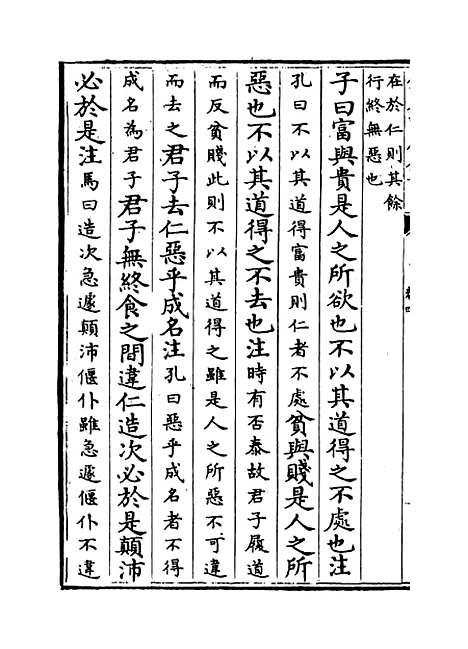 在於仁則其餘
行終無惡也
子曰富與貴是人之所欲也不以其道得之不處也注
孔曰不以其道得富貴則仁者不處貧與賤是人之所
惡也不以其道得之不去也注時有否泰故君子履道
而反貧賤此則不以其道得之雖是人之所惡不可違
而去之君子去仁惡乎成名注孔曰惡乎成名者不得
成名為君子君子無終食之間違仁造次必於是顛沛
必於是注馬曰造次急遽顛沛偃仆雖急遽偃仆不違